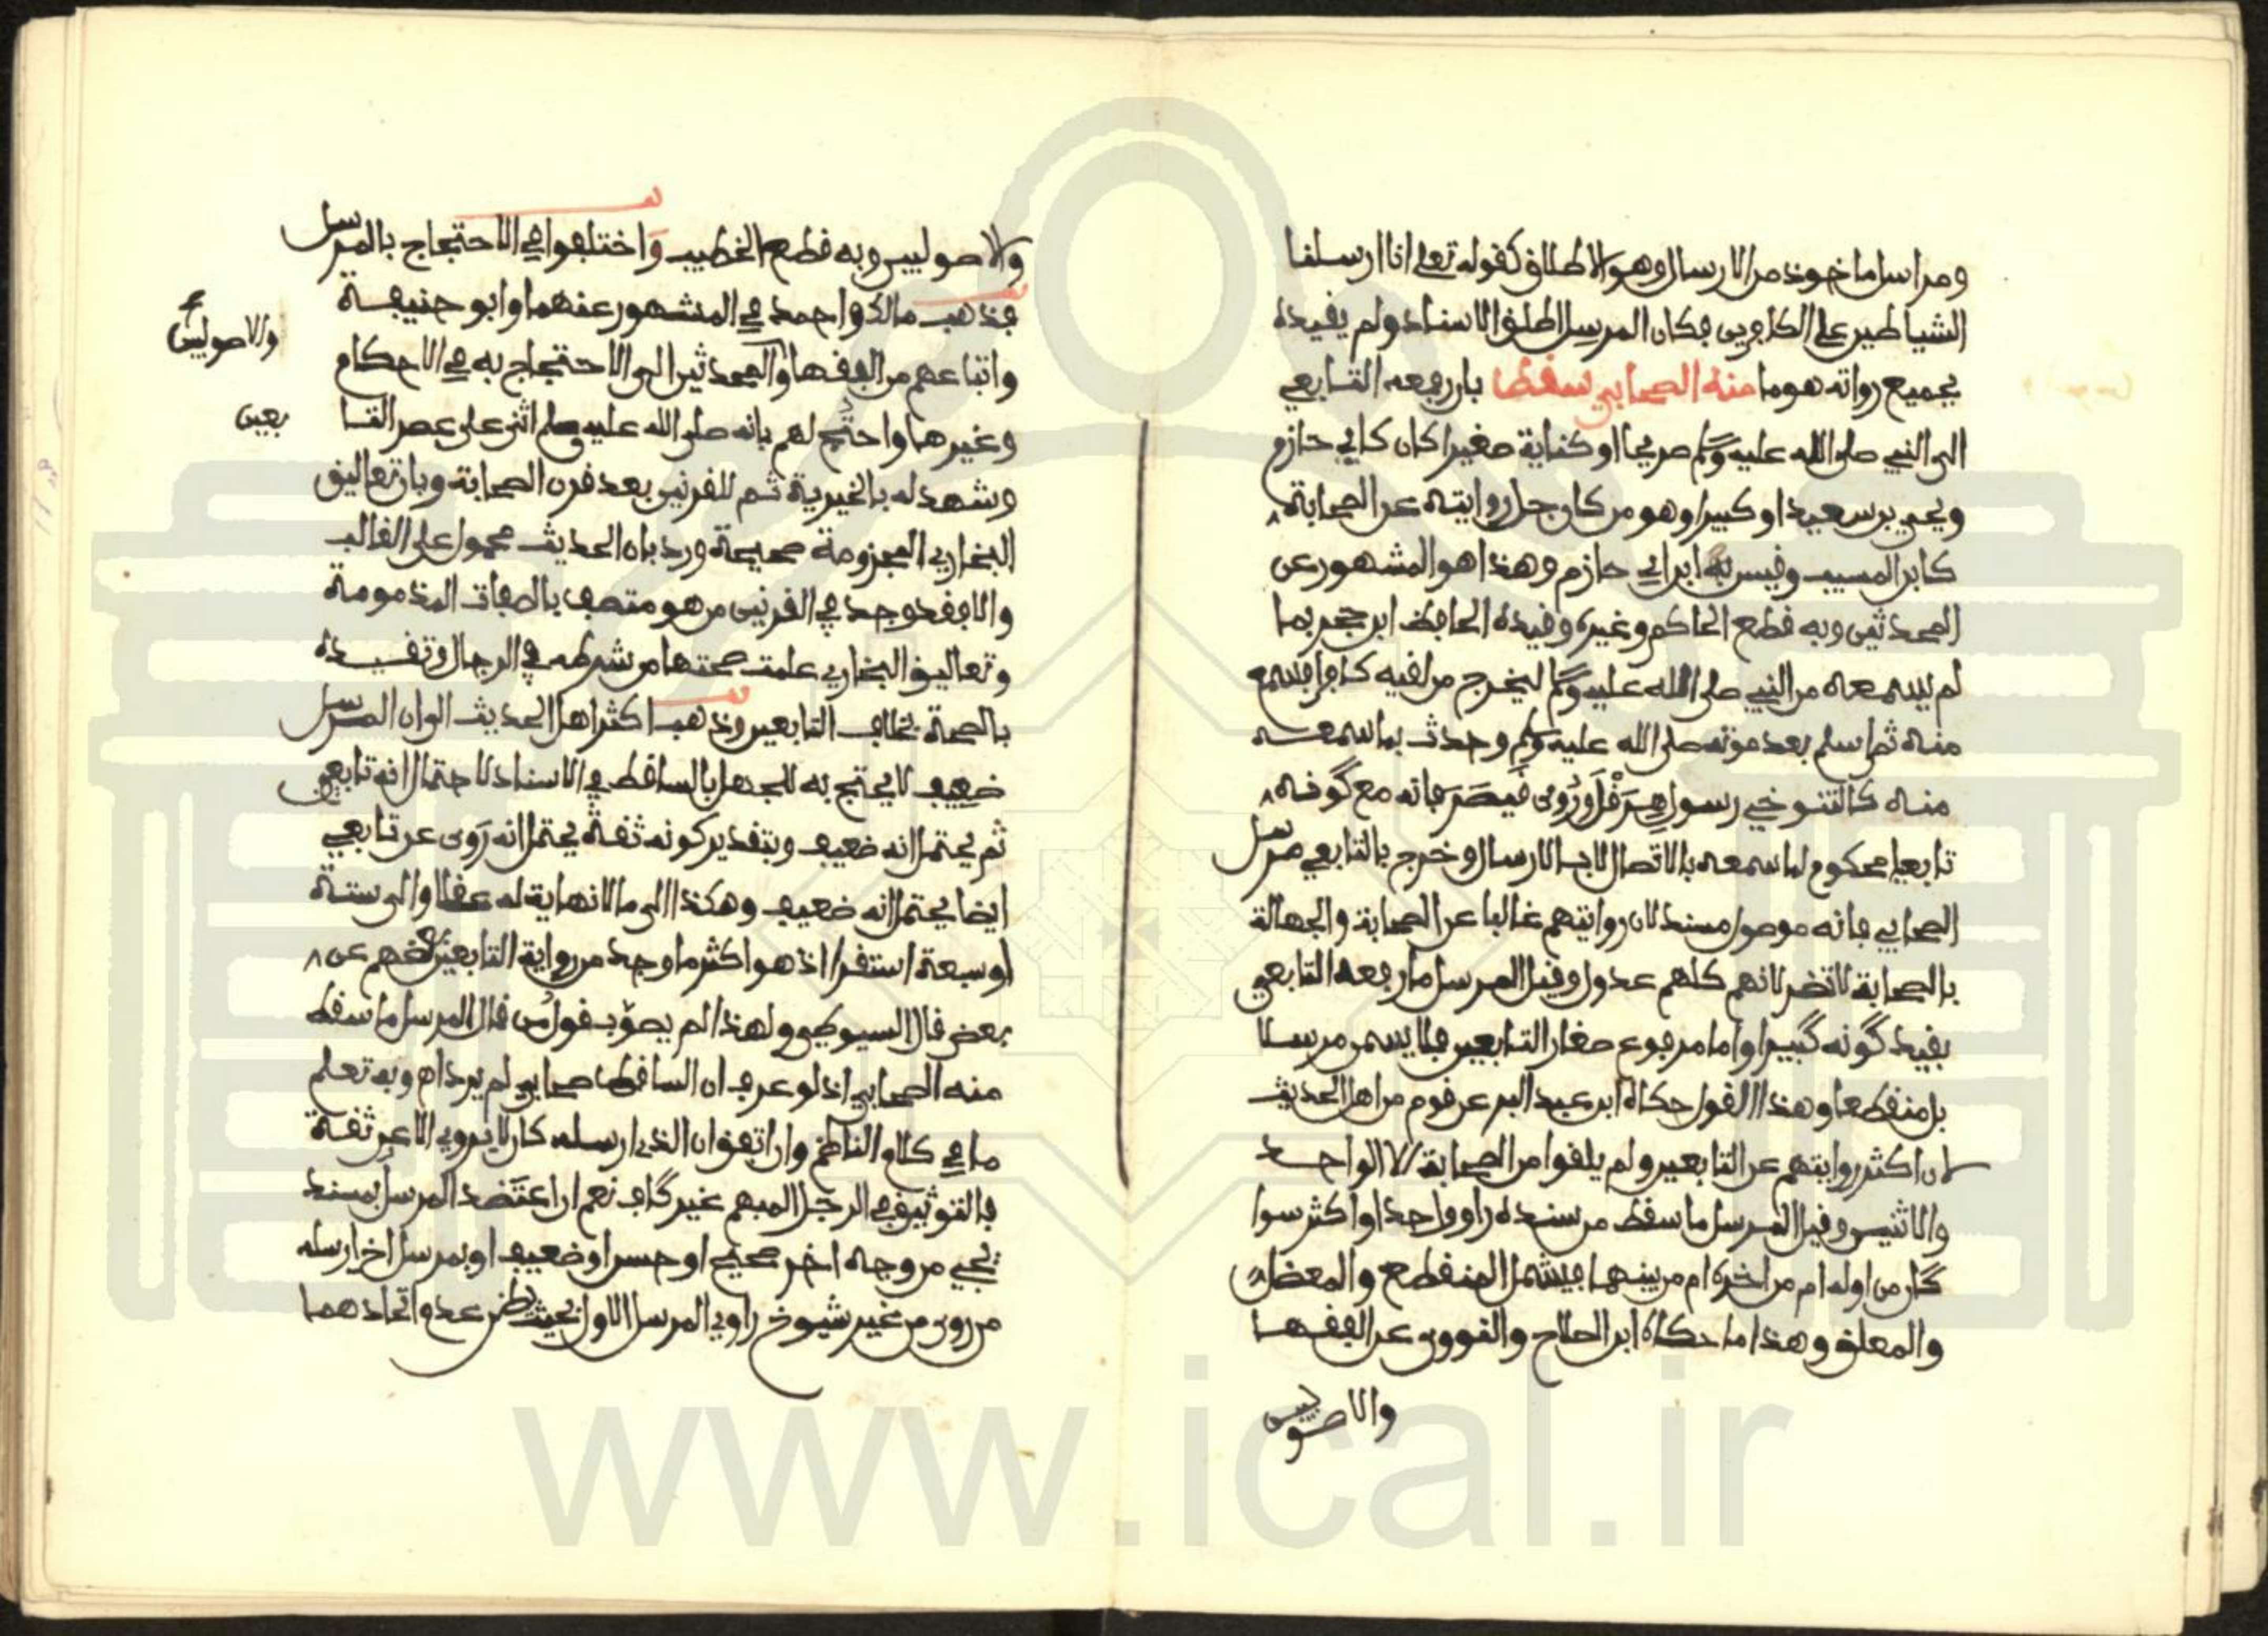 ومراسل ماخوذ من الارسال وهو الاطلاق كقوله تعلى انا ارسلنا
الشياطين على الكافرين فكان المرسل اطلق الاسناد ولم يقيده
بجميع رواته هو ما منه الصحابي سقط بان رفعه التابعي
الى النبي صلى الله عليه وسلم صريحا او كناية صغيرا كان كابي حازم
ويحيى بن سعيد او كبيرا وهو من كان جل روايته عن الصحابة
كابن المسيب وقيس ابن ابي حازم وهذا هو المشهور عن
المحدثين وبه قطع الحاكم وغيره وقيده الحافظ ابن حجر بما
لم يسمعه من النبي صلى الله عليه وسلم ليخرج من لقيه كافرا فسمع
منه ثم اسلم بعد موته صلى الله عليه وسلم وحدث بما سمعه
منه كالتنوخي رسول هِرَقْل وَرُوِي قَيصَرَ فانه مع كونه
تابعيا محكوم لما سمعه بالاتصال لا بالارسال وخرج بالتابعي مرسل
الصحابي فانه موصول مسند لان روايتهم غالبا عن الصحابة والجهالة
بالصحابة لا تضر لانهم كلهم عدول وقيل المرسل ما رفعه التابعي
بقيد كونه كبيرا واما مرفوع صغار التابعين فلا يسمى مرسلا
بل منقطعا وهذا القول حكاه ابن عبد البر عن قوم من اهل الحديث
لان اكثر روايتهم عن التابعين ولم يلقوا من الصحابة الا الواحد
والاثنين وقيل المرسل ما سقط من سنده راو واحد او اكثر سوا
كان من اوله ام من اخره ام من بينهما فيشمل المنقطع والمعضل
والمعلق وهذا ما حكاه ابن الصلاح والنووي عن الفقها
والاصوليين
والاصوليين وبه قطع الخطيب واختلفوا في الاحتجاج بالمرسل
فذهب مالك واحمد في المشهور عنهما وابو حنيفة
واتباعهم من الفقها والمحدثين الى الاحتجاج به في الاحكام
والاصوليين
وغيرهما واحتج لهم بانه صلى الله عليه وسلم اثنى على عصر التا
بعين
وشهد له بالخيرية ثم للقرنين بعد قرن الصحابة وبان تعاليق
البخاري المجزومة صحيحة ورد بان الحديث محمول على الغالب
والا فقد وجد في القرنين من هو متصف بالصفات المذمومة
وتعاليق البخاري علمت صحتها من شرطه في الرجال وتقييده
بالصحة بخلاف التابعين وذهب اكثر اهل الحديث الى ان المرسل
ضعيف لا يحتج به للجهل بالساقط في الاسناد لاحتمال انه تابعي
ثم يحتمل انه ضعيف وبتقدير كونه ثقة يحتمل انه رَوى عن تابعي
ايضا يحتمل انه ضعيف وهكذا الى ما لا نهاية له عقلا والى ستة
او سبعة استقرا اذ هو اكثر ما وجد من رواية التابعين بعضهم عن
بعض قال السيوطي ولهذا لم يصوّب قول من قال المرسل ما سقط
منه الصحابي اذ لو عرف ان الساقط صحابي لم يرد اه وبه تعلم
ما في كلام الناظم وان اتفق ان الذي ارسله كان لا يروي الا عن ثقة
فالتوثيق في الرجل المبهم غير كاف نعم ان اعتَضد المرسل بمسند
يجي من وجه اخر صحيح او حسن او ضعيف او بمرسل اخر ارسله
من روى من غير شيوخ راوي المرسل الاول بحيث يظن عدم اتحادهما